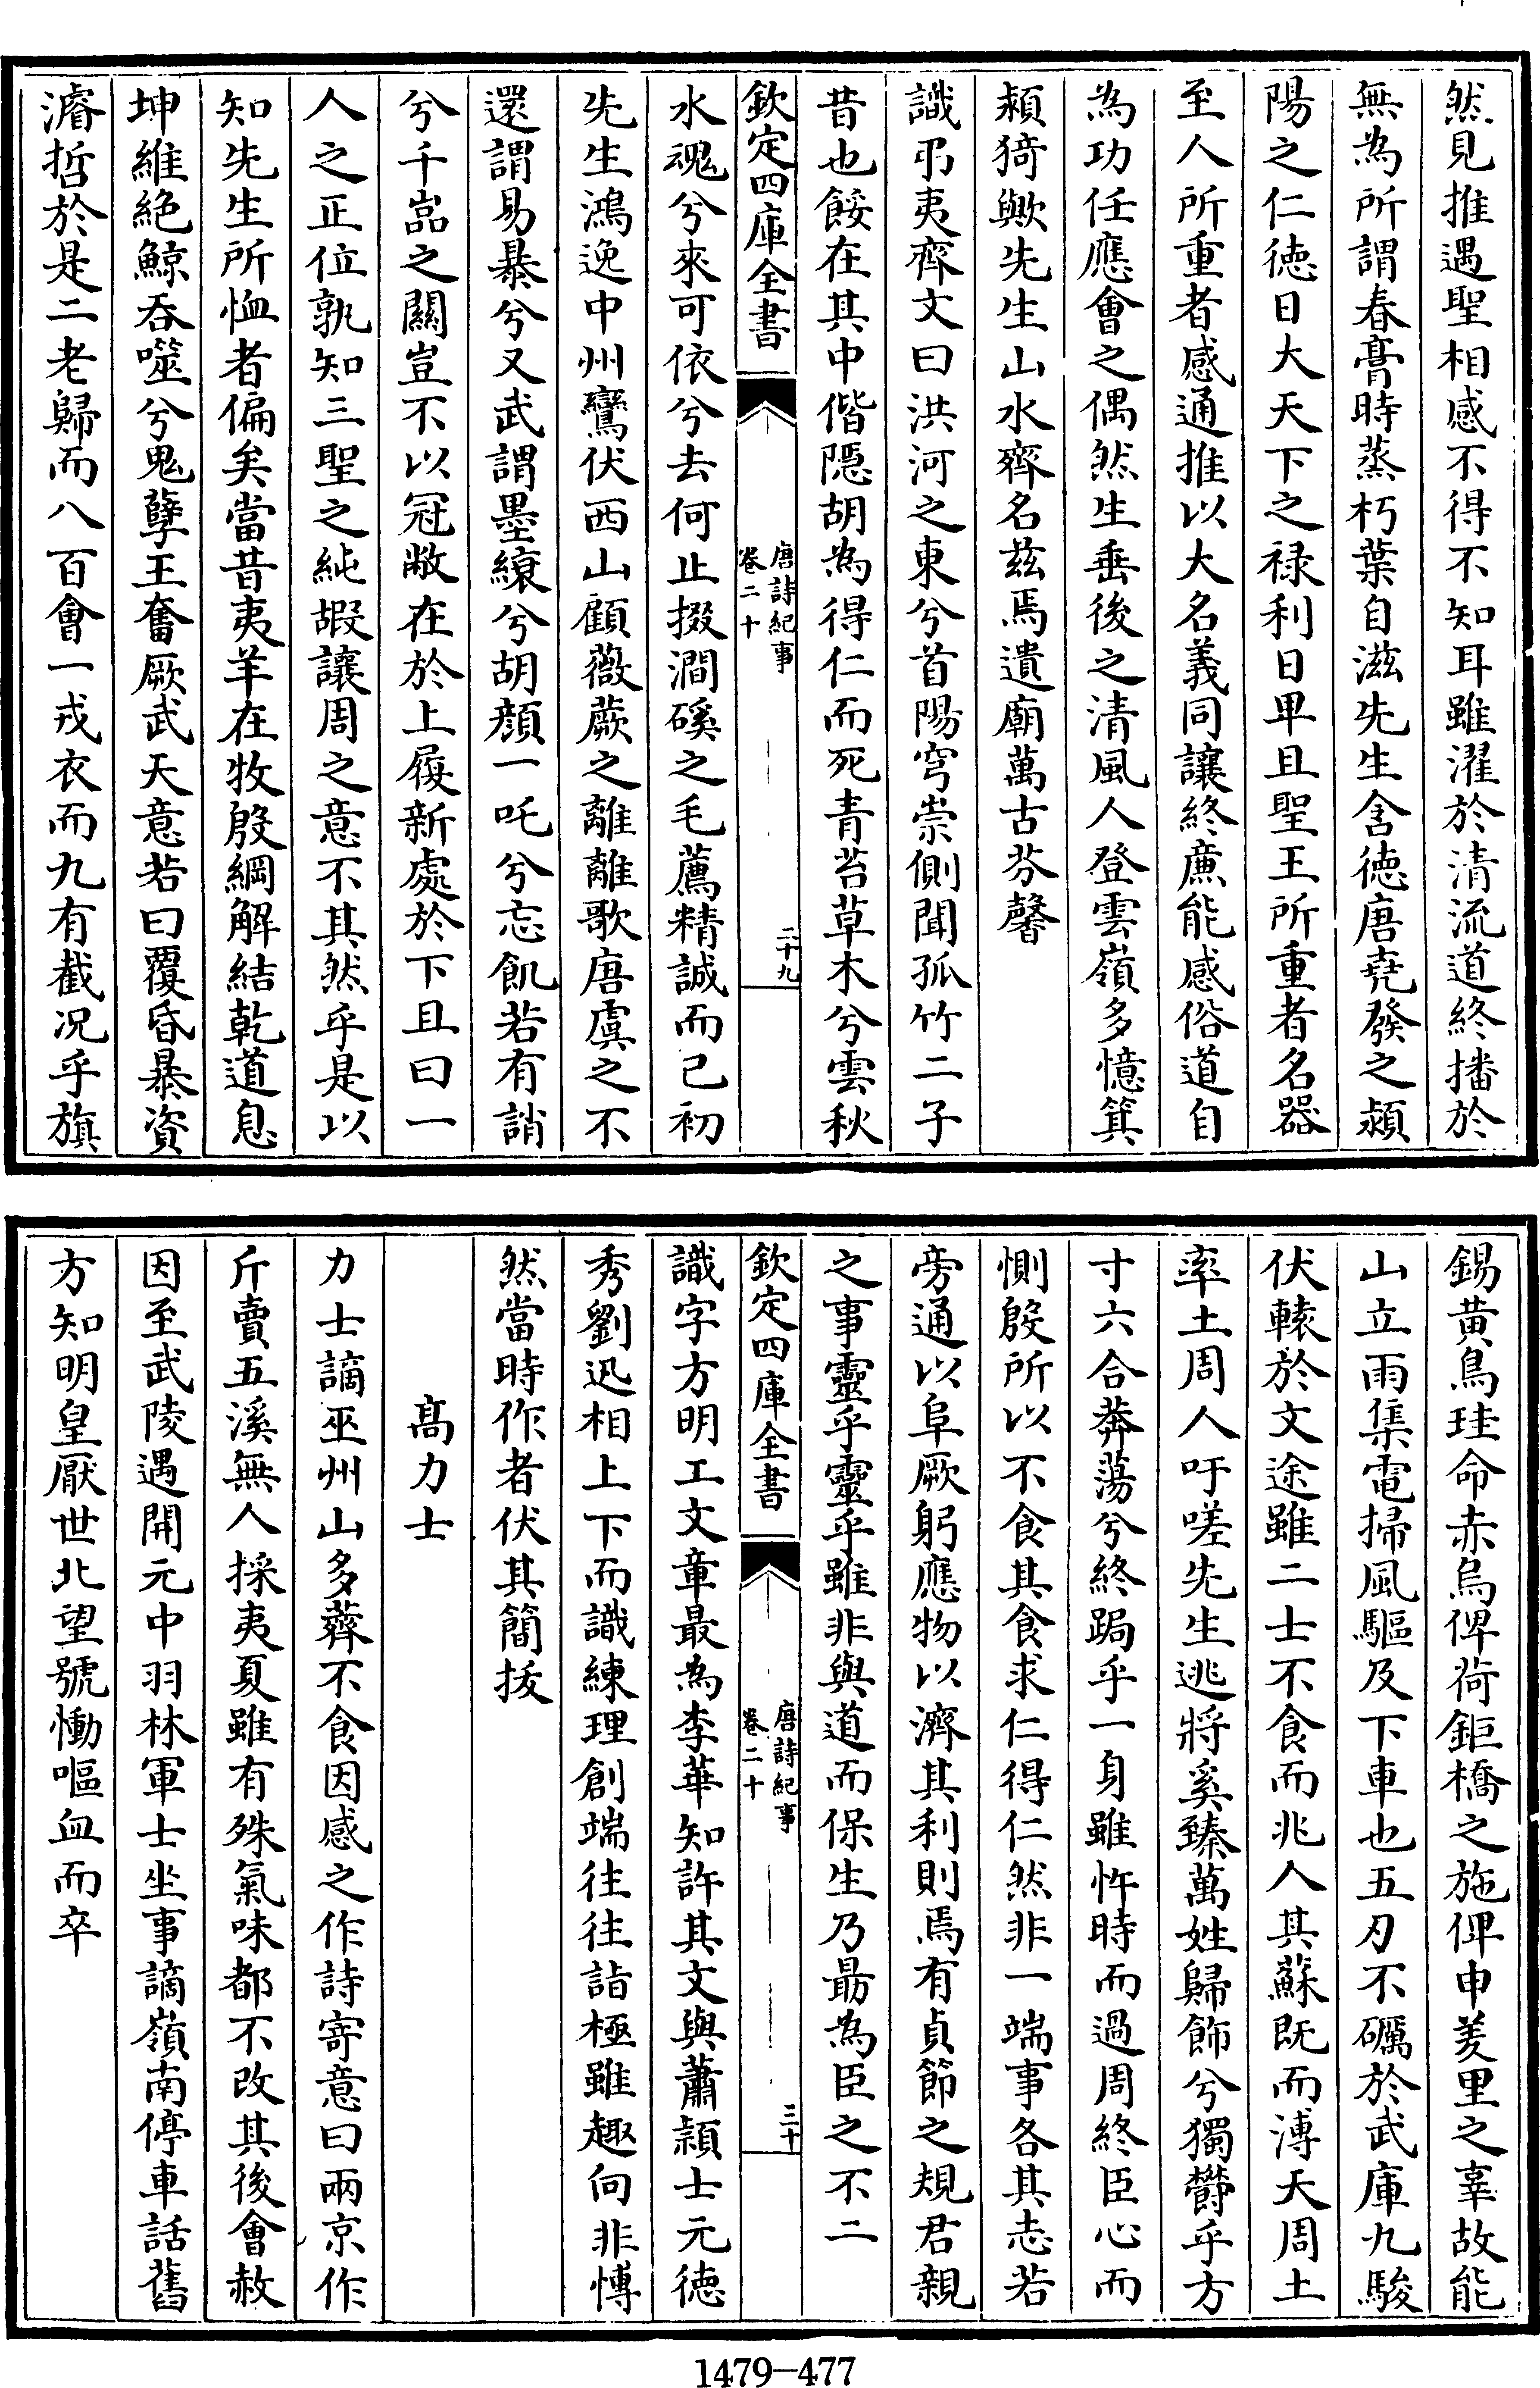 然見推遇聖相感不得不知耳雖濯於清流道終播於
無為所謂春膏時蒸朽葉自滋先生含徳唐堯發之潁
陽之仁徳日大天下之禄利日卑且聖王所重者名器
至人所重者感通推以大名義同讓終亷能感俗道自
為功任應會之偶然生垂後之清風人登雲嶺多憶箕
潁猗歟先生山水齊名兹焉遺廟萬古芬馨
識弔夷齊文曰洪河之東兮首陽穹崇側聞孤竹二子
昔也餒在其中偕隠胡為得仁而死青苔草木兮雲秋
欽定四庫全書
唐詩紀事
卷二十
二十九
水魂兮來可依兮去何止掇澗磎之毛薦精誠而已初
先生鴻逸中州鸞伏西山顧薇蕨之離離歌唐虞之不
還謂易暴兮又武謂墨縗兮胡顔一吒兮忘飢若有誚
兮千嵓之闗豈不以冠敝在於上履新處於下且曰一
人之正位孰知三聖之純嘏讓周之意不其然乎是以
知先生所恤者偏矣當昔夷羊在牧殷綱解結乾道息
坤維絶鯨呑噬兮鬼孽王奮厥武天意若曰覆昏暴資
濬哲於是二老歸而八百會一戎衣而九有截况乎旗
錫黄鳥珪命赤烏俾荷鉅橋之施俾申羑里之辜故能
山立雨集電掃風驅及下車也五刃不礪於武庫九駿
伏轅於文途雖二士不食而兆人其蘇既而溥天周土
率土周人吁嗟先生逃將奚臻萬姓歸飾兮獨欝乎方
寸六合莽蕩兮終跼乎一身雖忤時而過周終臣心而
惻殷所以不食其食求仁得仁然非一端事各其志若
旁通以阜厥躬應物以濟其利則焉有貞節之規君親
之事靈乎靈乎雖非與道而保生乃勗為臣之不二
欽定四庫全書
唐詩紀事
卷二十
三十
識字方明工文章最為李華知許其文與蕭潁士元徳
秀劉迅相上下而識練理創端往往詣極雖趣向非慱
然當時作者伏其簡拔
髙力士
力士謫巫州山多薺不食因感之作詩寄意曰兩京作
斤賣五溪無人採夷夏雖有殊氣味都不改其後會赦
因至武陵遇開元中羽林軍士坐事謫嶺南停車話舊
方知明皇厭世北望號慟嘔血而卒
1479—477